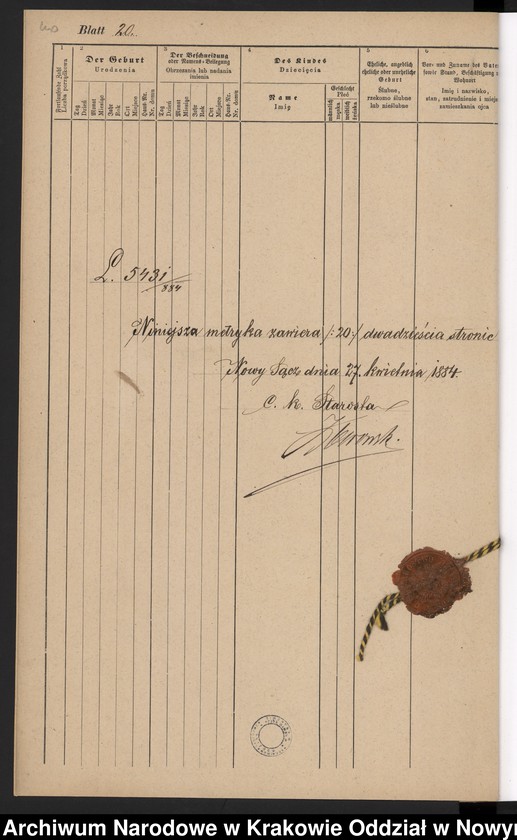 Blatt 20.
1
2
3
4
5
6
Fortlaufende Zahl
Liczba porządkowa
Der Geburt
Urodzenia
Tag
Dzień
Monat
Miesiąc
Jahr
Rok
Ort
Miejsce
Haus-Nr.
Nr. domu
Der Beschneidung
oder Namens-Beilegung
Obrzezania lub nadania
imienia
Tag
Dzień
Monat
Miesiąc
Jahr
Rok
Ort
Miejsce
Haus-Nr.
Nr. domu
Des Kindes
Dziecięcia
Name
Imię
Geschlecht
Płeć
männlich
męska
weiblich
żeńska
Eheliche, angeblich
eheliche oder uneheliche
Geburt
Ślubne,
rzekomo ślubne
lub nieślubne
Vor- und Zuname des Vaters
sowie Stand, Beschäftigung u
Wohnort
Imię i nazwisko,
stan, zatrudnienie i miejs
zamieszkania ojca
L. 5431/884
Niniejsza metryka zawiera /:20:/ dwadzieścia stronic
Nowy Sącz dnia 27. kwietnia 1884.
C. k. Starosta
Archiwum Narodowe w Krakowie Oddział w Nowy